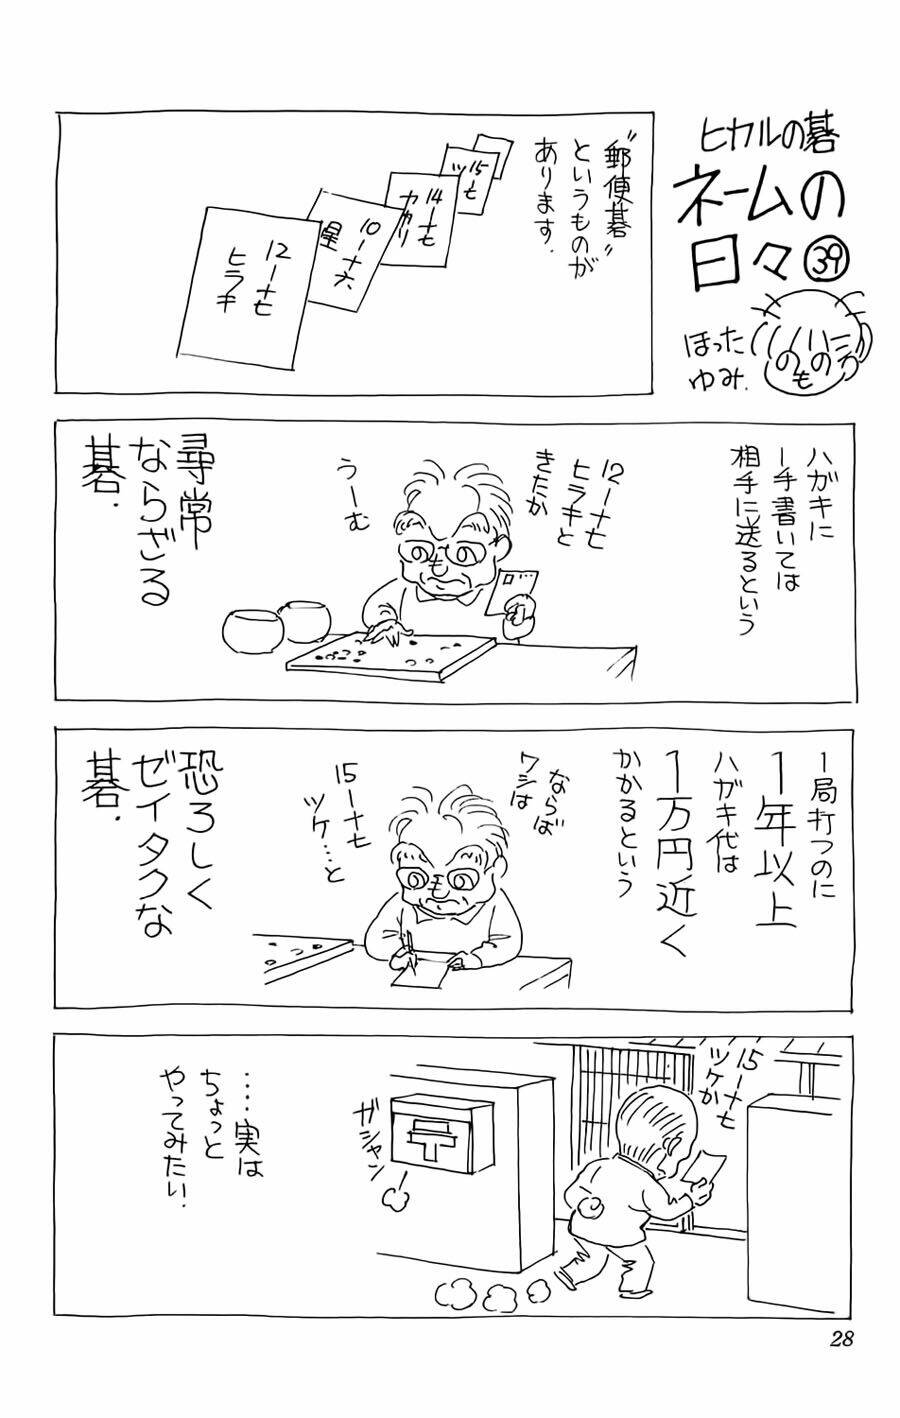 ヒカルの碁
ネームの
日々㊴
ほった
ゆみ.
"郵便碁"
というものが
あります.
15ー十七
ツ
14ー十七
カカリ
10ー十六
星
12ー十七
ヒラキ
ハガキに
一手書いては
相手に送るという
12ー十七
ヒラキと
きたか
うーむ
尋常
ならざる
碁.
1局打つのに
1年以上
ハガキ代は
1万円近く
かかるという
ならば
ワシは
15ー十七
ツケ…と
恐ろしく
ゼイタクな
碁.
15ー十七
ツケか
ガシャン
……実は
ちょっと
やってみたい.
28